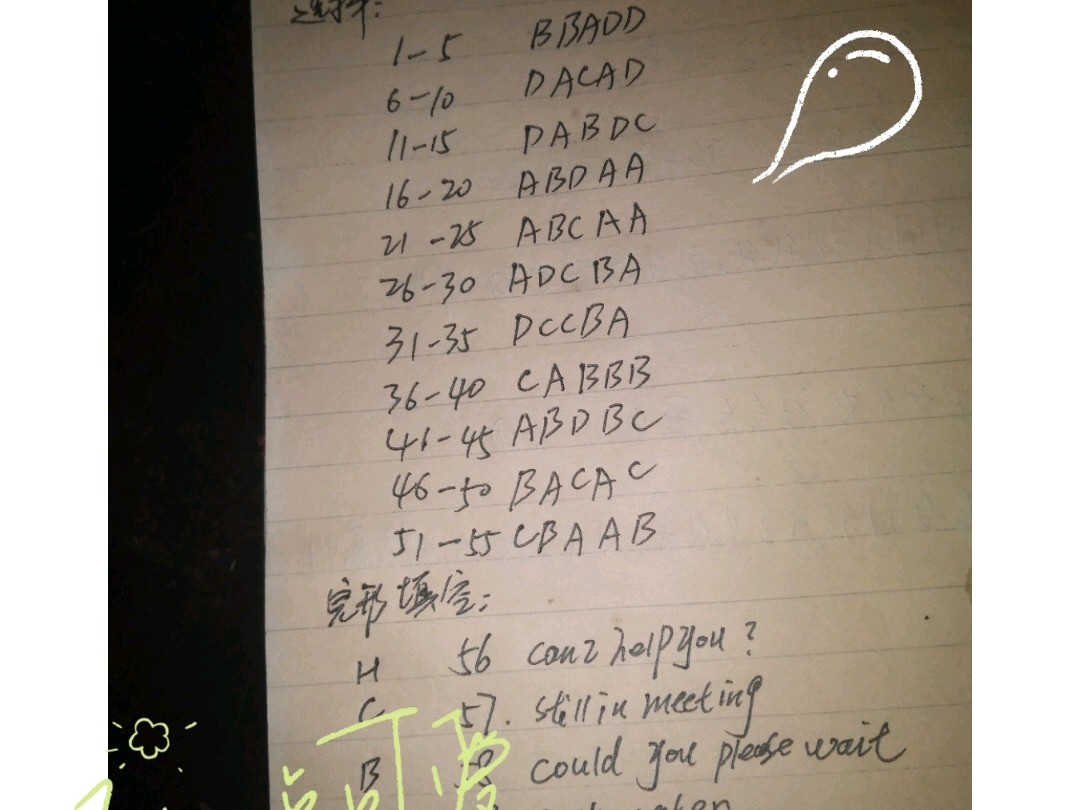 选择:
1-5 BBADD
6-10 DACAD
11-15 DABDC
16-20 ABDAA
21-25 ABCAA
26-30 ADCBA
31-35 DCCBA
36-40 CABBB
41-45 ABDBC
46-50 BACAC
51-55 CBAAB
完形填空:
H 56 can I help you?
C 57. still in meeting
B 58 could you please wait
可爱